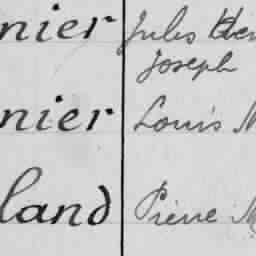 nier Jules
Joseph
nier Louis M
land Pierre M